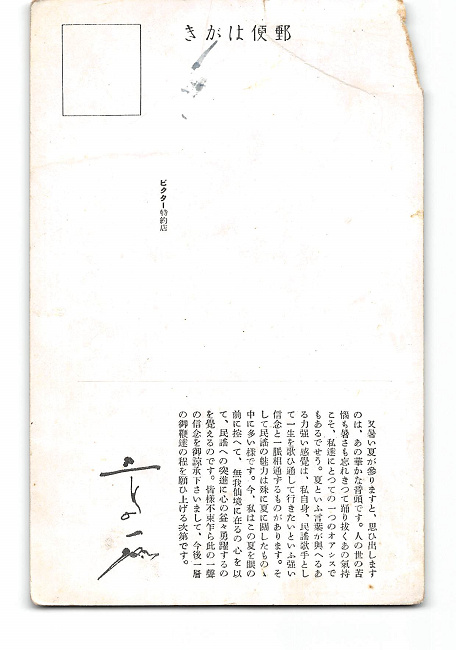 郵便はがき
ビクター特約店
又暑い夏が参りますと、思ひ出します
のは、あの華かな音頭です。人の世の苦
悩も暑さも忘れきつて踊り抜くあの気持
こそ、私達にとつての一つのオアシスで
もあるでせう。夏といふ言葉が與へるあ
る力強い感覚は、私自身、民謡歌手とし
て一生を歌ひ通して行きたいといふ強い
信念と一脈相通ずるものがあります。そ
して民謡の魅力は殊に夏に関したものゝ
中に多い様です。今、私はこの夏を眼の
前に控へて、無我仙境に在るの心を以
て、民謡への突進に心の益々勇躍するの
を覚えるのです。皆様不束乍ら此の一聲
の信念を御諒承下さいまして、今後一層
の御鞭達の程を願ひ上げる次第です。